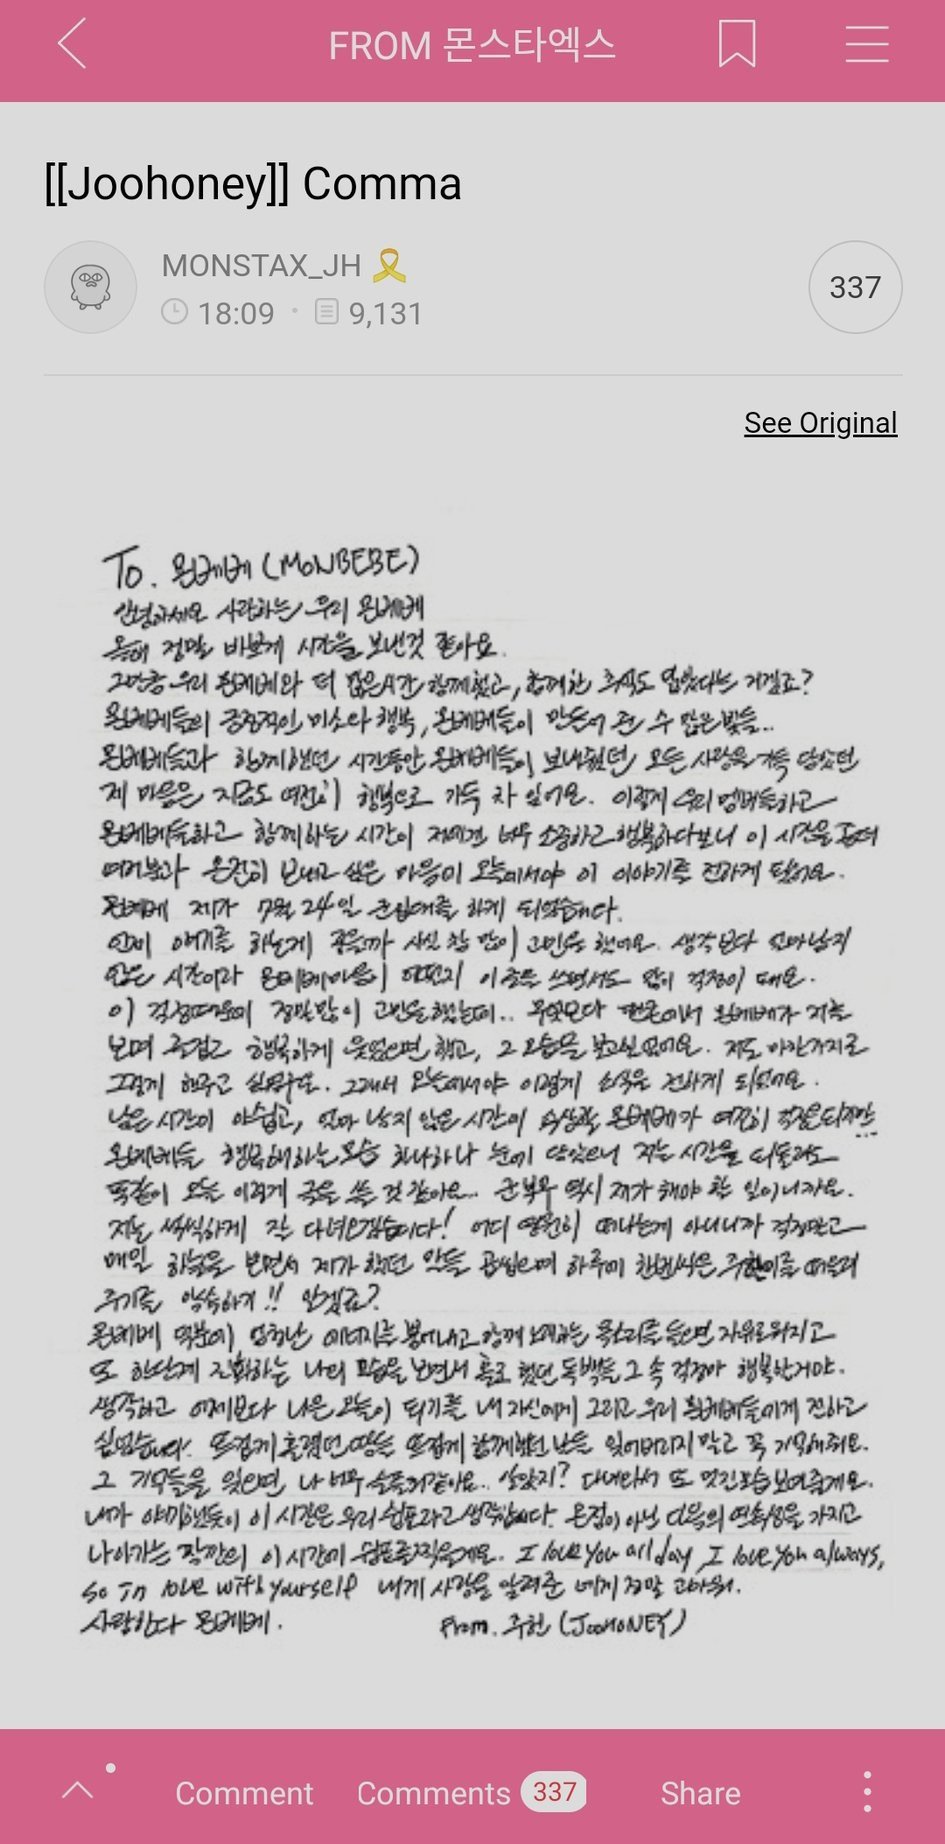 FROM 몬스타엑스
[[Joohoney]] Comma
MONSTAX_JH 🎗
18:09 · 9,131
337
See Original
To. 몬베베 (MONBEBE)
안녕하세요 사랑하는 우리 몬베베
올해 정말 바쁘게 시간을 보낸것 같아요.
그만큼 우리 몬베베와 더 많은시간 함께했고, 함께한 추억도 많았다는 거겠죠?
몬베베들의 긍정적인 미소와 행복, 몬베베들이 만들어 준 수 많은 빛들..
몬베베들과 함께 했던 시간동안 몬베베들이 보내줬던 모든 사랑을 가득 담았던
제 마음은 지금도 여전히 행복으로 가득 차 있어요. 이렇게 우리 멤버들하고
몬베베들하고 함께하는 시간이 저에겐 너무 소중하고 행복하다보니 이 시간을
여러분과 온전히 보내고 싶은 마음에 오늘에서야 이 이야기를 전하게 됐어요.
몬베베 제가 7월 24일 군입대를 하게 되었습니다.
언제 얘기를 하는게 좋을까 사실 참 많이 고민을 했어요. 생각보다 얼마남지
않은 시간이라 몬베베마음이 어떨지 이 글을 쓰면서도 많이 걱정이 돼요.
이 걱정때문에 정말많이 고민을했는데.. 무엇보다 현존에서 몬베베가 저를
보며 즐겁고 행복하게 웃었으면 했고, 그 모습을 보고싶었어요. 저도 마찬가지로
그렇게 해주고 싶었구요. 그래서 오늘에서야 이렇게 소식을 전하게 되었어요.
남은 시간이 아쉽고, 얼마 남지 않은 시간이 몬베베가 여전히 걱정은되지만...
몬베베들 행복해하는모습 하나하나 눈에 담았으니 저는 시간을 되돌려도
똑같이 오늘 이렇게 글을 쓸 것 같아요.. 군복무 역시 제가 해야 할 일이니까요.
저는 씩씩하게 잘 다녀오겠습니다! 어디 영원히 떠나는게 아니니까 걱정말고
매일 하늘을 보면서 제가 했던 말들 곱씹으며 하루에 한번씩은 주헌이를 떠올려
주기를 약속하기!! 알겠죠?
몬베베 덕분에 엄청난 에너지를 뿜어내고 함께 노래하는 목소리를 들으면 자유로워지고
또 한단계 진화하는 나의 모습을 보면서 홀로 했던 독백들 그 속 걱정아 행복한거야.
생각하고 어제보다 나은 오늘이 되기를 내 자신에게 그리고 우리 몬베베들에게 전하고
싶었습니다. 뜨겁게 흘렸던 땀들 뜨겁게 함께했던 날들 잊어버리지 말고 꼭 기억해줘요.
그 기억들을 잊으면, 나 너무 슬플거같아요.. 알았지? 다녀와서 또 멋진모습 보여줄게요.
내가 얘기했듯이 이 시간은 우리 쉼표라고 생각합니다. 온점이 아닌 다음의 연속성을 가지고
나아가는 잠깐의 이 시간에 쉼표를찍을게요. I love you all day I love you always,
so In love with yourself 내게 사랑을 알려준 너에게 정말 고마워.
사랑한다 몬베베.
From. 주헌 (JOOHONEY)
Comment
Comments 337
Share